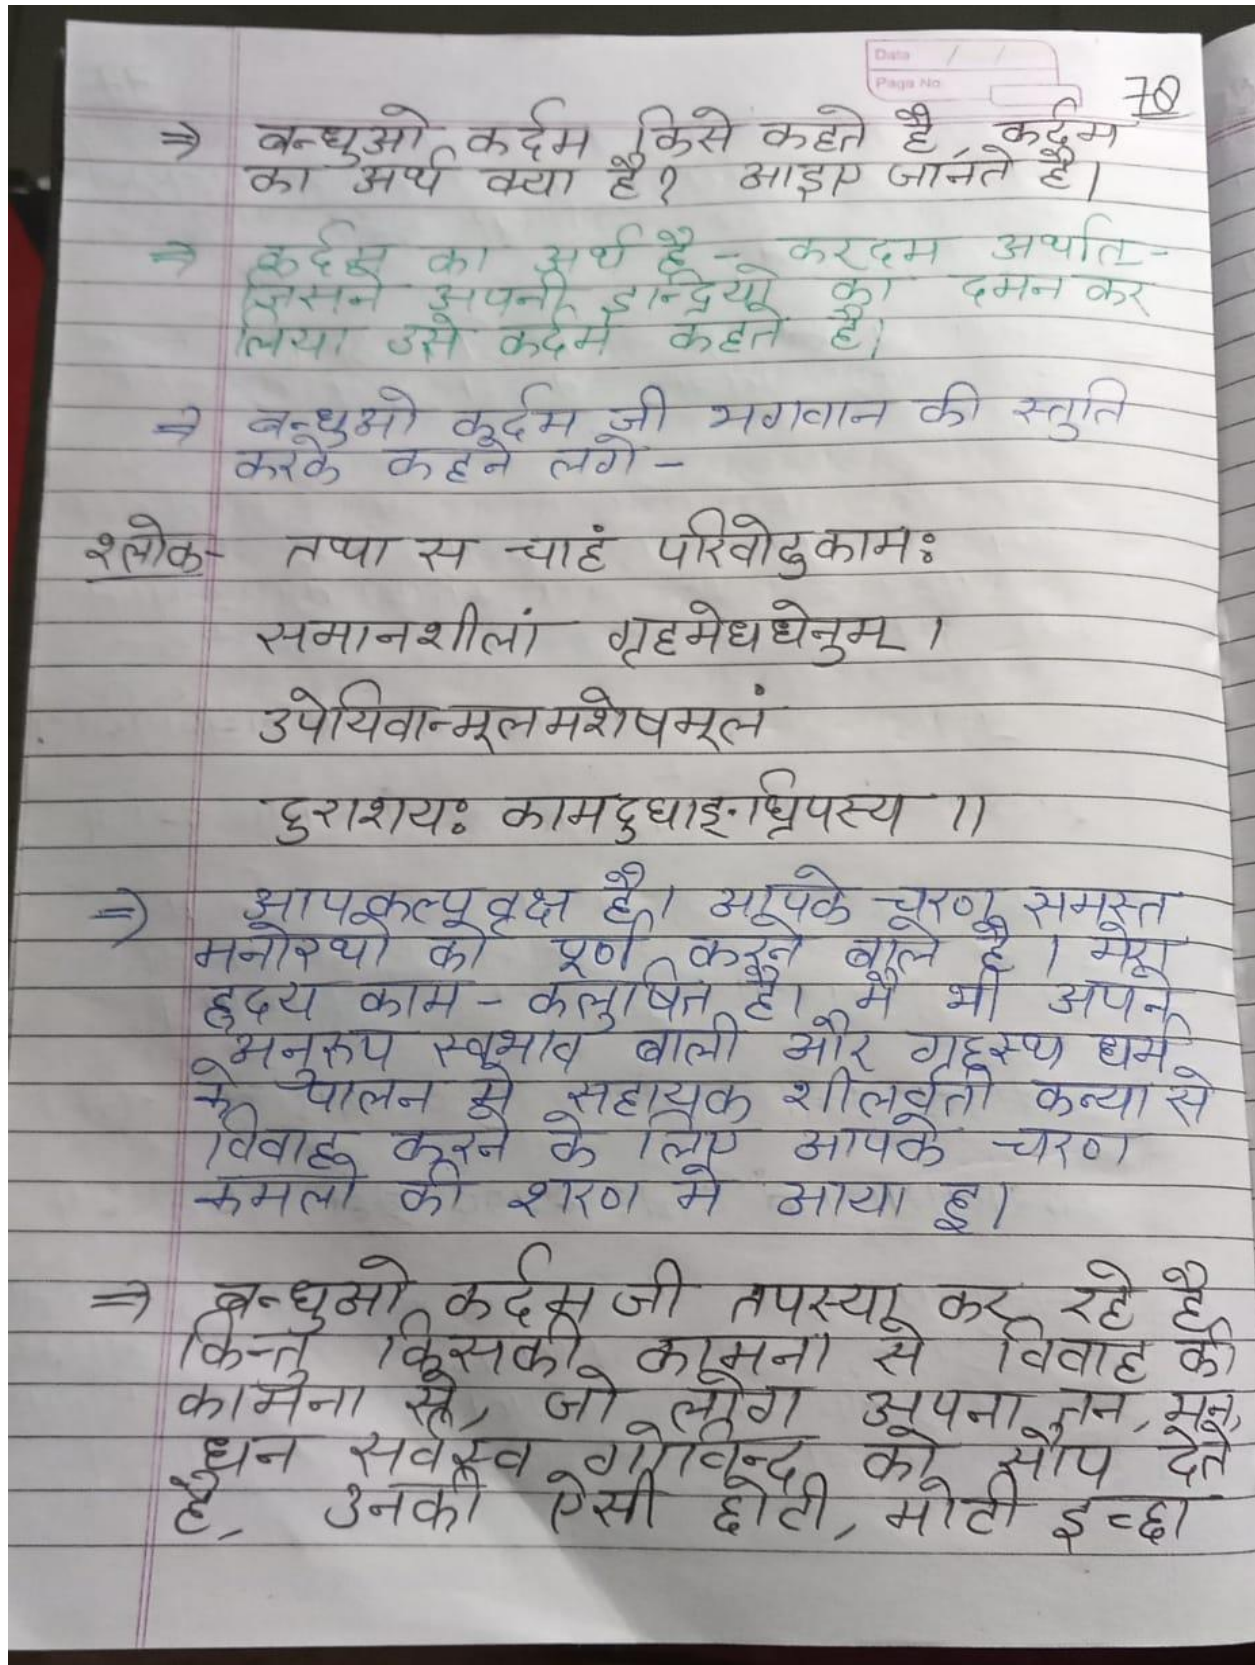 Date / /
Page No
78
⇒ बन्धुओ कर्दम किसे कहते है, कर्दम
का अर्थ क्या है? आइए जानते है।
⇒ कर्दम का अर्थ है - करदम अर्थात -
जिसने अपनी इन्द्रियो का दमन कर
लिया उसे कर्दम कहते है।
⇒ बन्धुओ कर्दम जी भगवान की स्तुति
करके कहने लगे -
श्लोक - तथा स चाहं परिवोढुकामः
समानशीलां गृहमेधधेनुम् ।
उपेयिवान्मूलमशेषमूलं
दुराशयः कामदुघाङ्घ्रिपस्य ।।
⇒ आपकल्पवृक्ष है। आपके चरण समस्त
मनोरथो को पूर्ण करने बाले है। मेरा
हृदय काम - कलुषित है। मै भी अपने
अनुरुप स्वभाव बाली और गृहस्थ धर्म
के पालन मे सहायक शीलवती कन्या से
विवाह करने के लिए आपके चरण
कमलो की शरण मे आया हू।
⇒ बन्धुओ कर्दम जी तपस्या कर रहे है
किन्तु किसकी कामना से विवाह की
कामना से, जो लोग अपना तन, मन,
धन सर्वस्व गोविन्द को सौप देते
है, उनकी ऐसी छोटी, मोटी इच्छा